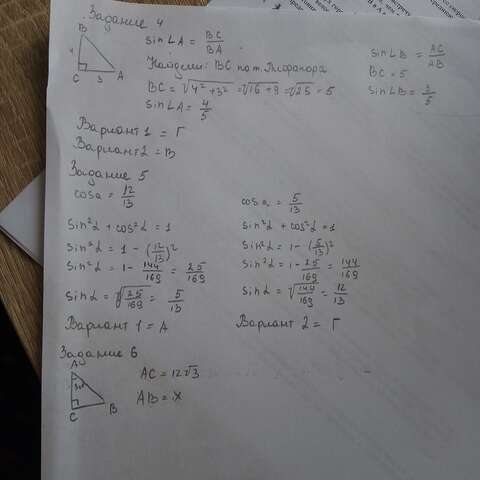 Задание 4
B
4
C 3 A
sin∠A = BC/BA
Найдём: BC по т. Пифагора
BC = √4² + 3² = √16 + 9 = √25 = 5
sin∠A = 4/5
sin∠B = AC/AB
BC = 5
sin∠B = 3/5
Вариант 1 = Г
Вариант 2 = В
Задание 5
cosα = 12/13
sin²α + cos²α = 1
sin²α = 1 - (12/13)²
sin²α = 1 - 144/169 = 25/169
sinα = √25/169 = 5/13
Вариант 1 = А
cosα = 5/13
sin²α + cos²α = 1
sin²α = 1 - (5/13)²
sin²α = 1 - 25/169 = 144/169
sinα = √144/169 = 12/13
Вариант 2 = Г
Задание 6
A
C B
AC = 12√3
AB = x